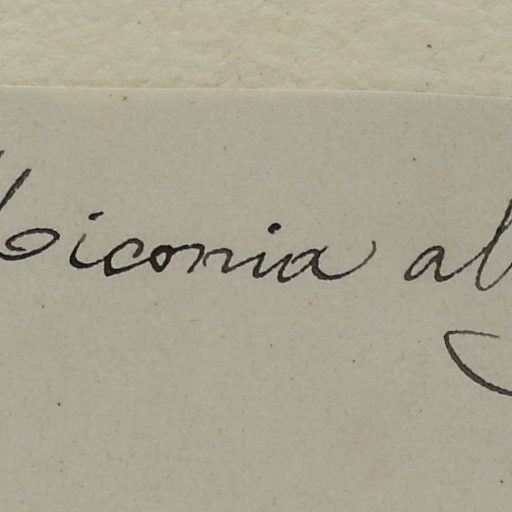 Miconia al